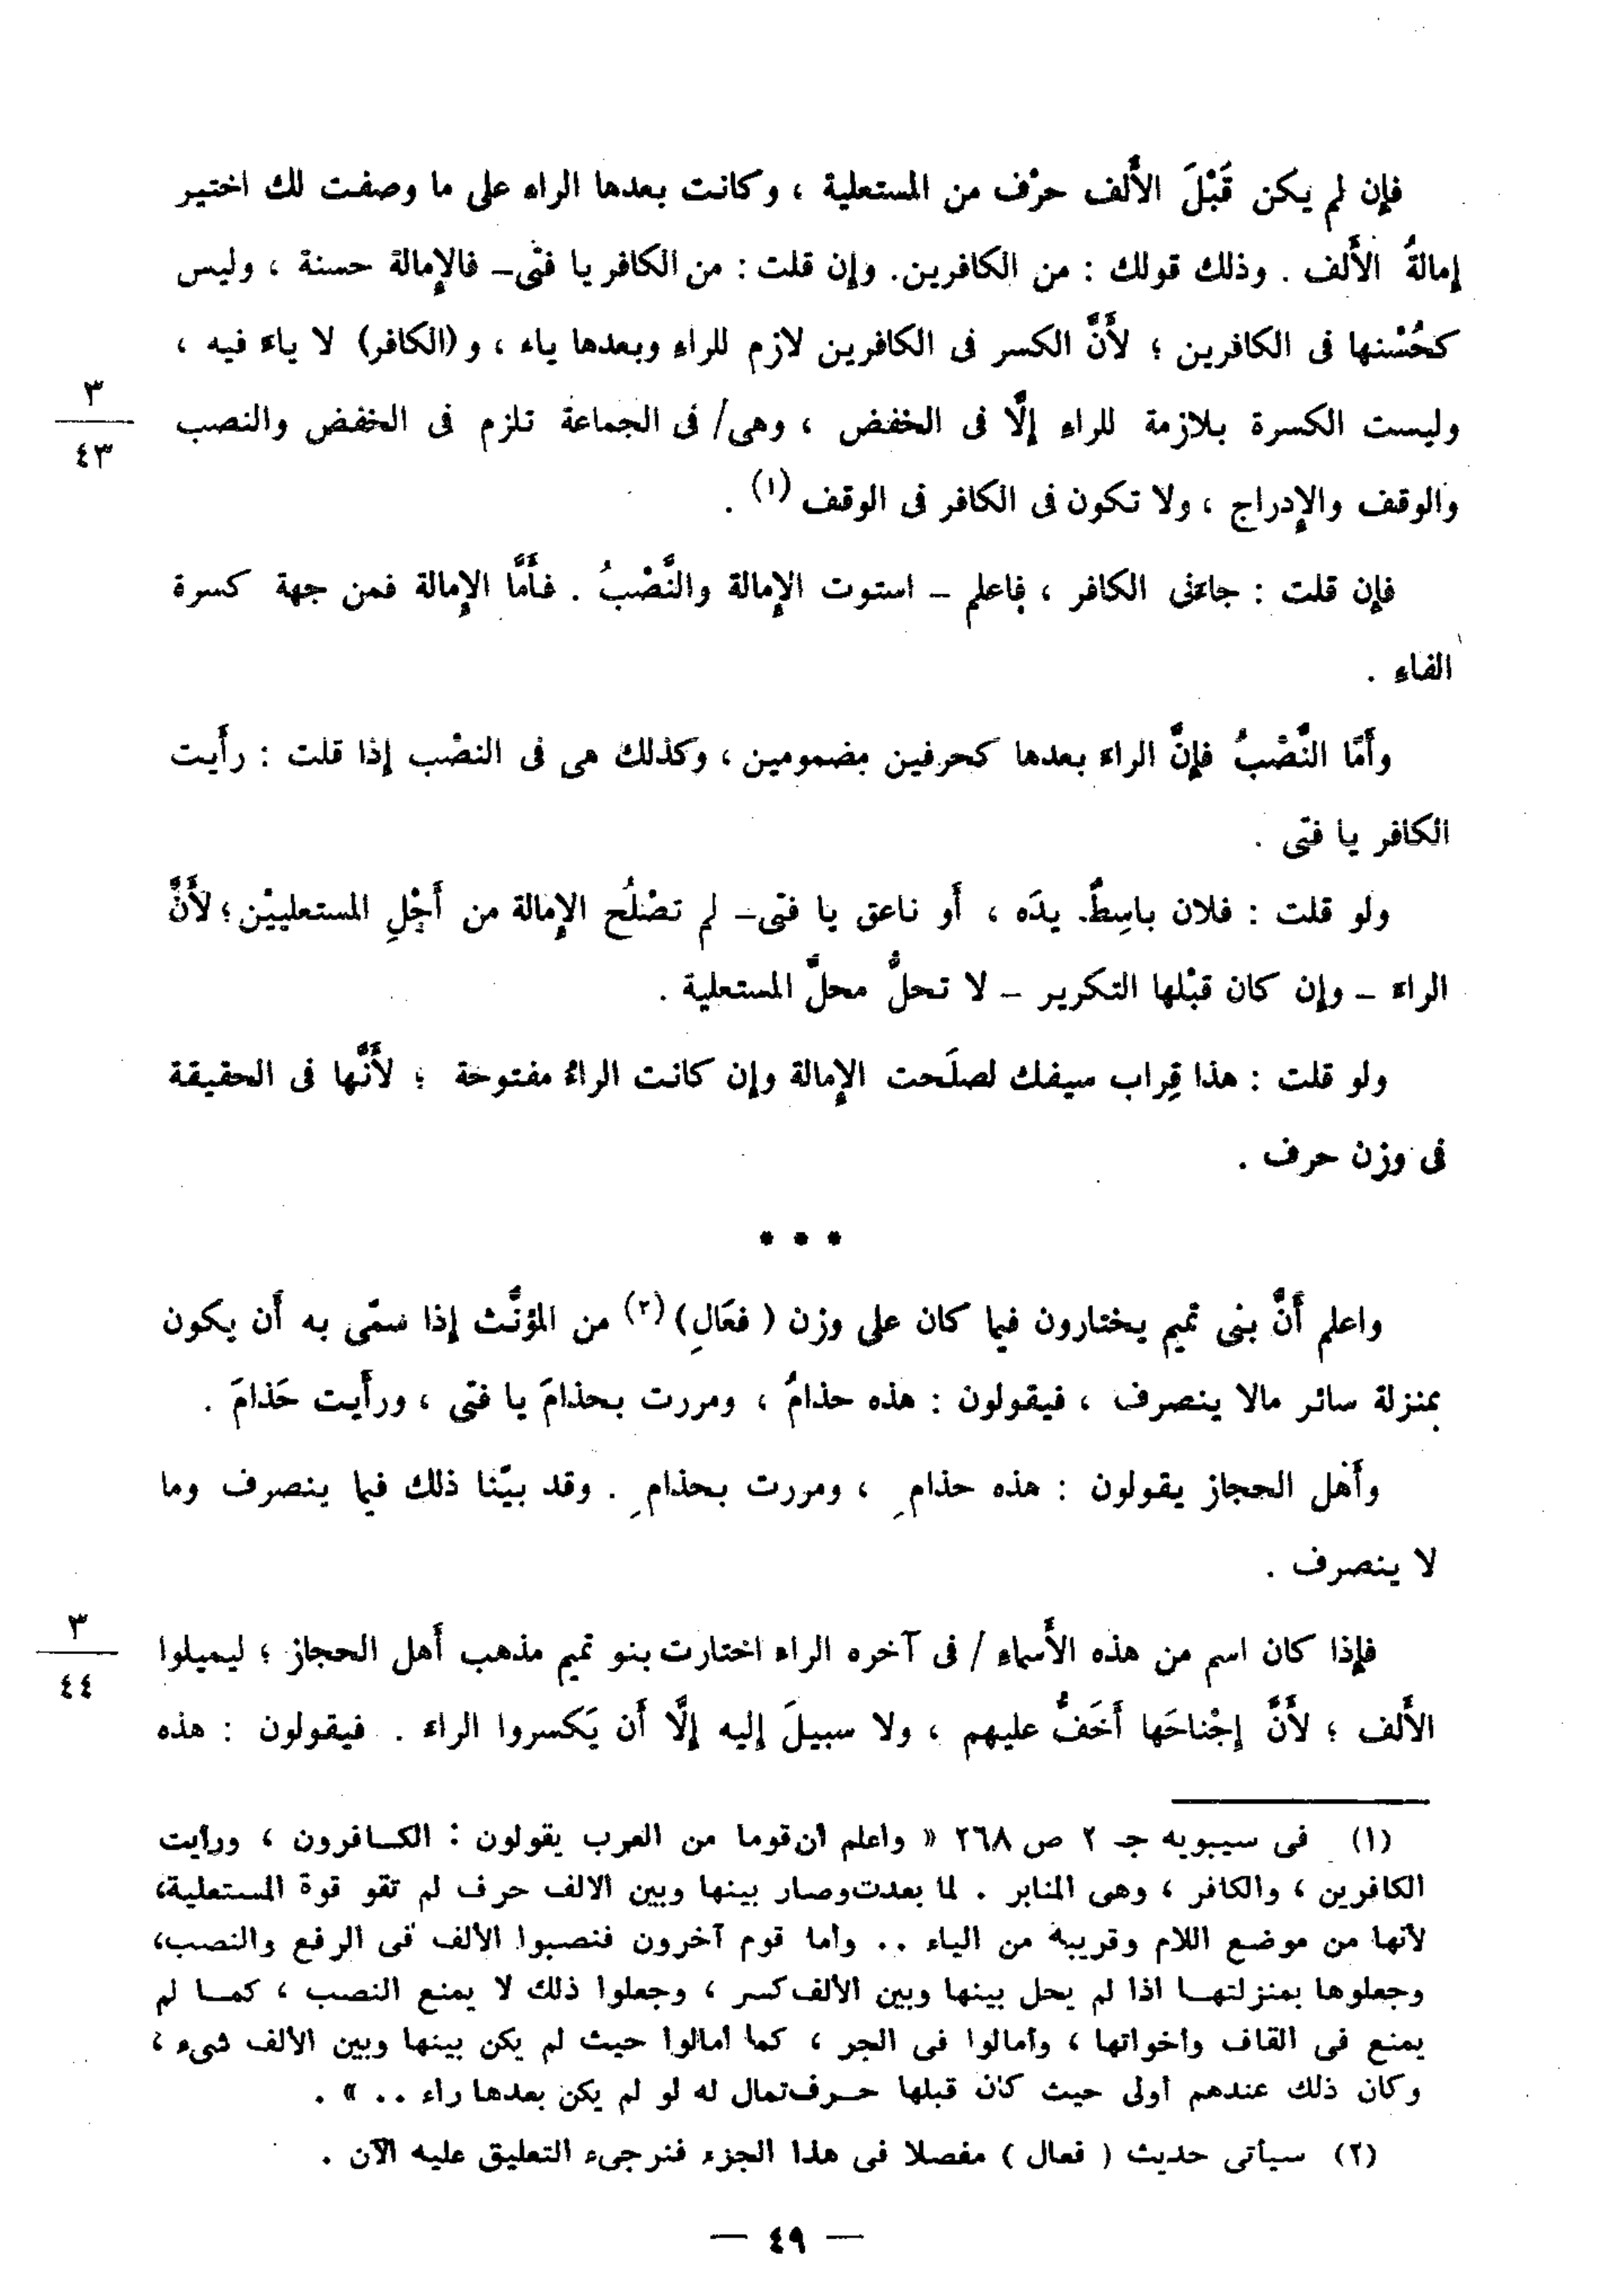 فإن لم يكن قَبْلَ الأَلف حرْف من المستعلية ، وكانت بعدها الراء على ما وصفت لك اختير
إمالةُ الأَلف . وذلك قولك : من الكافرين. وإن قلت : من الكافر يا فتى – فالإمالة حسنة ، وليس
كحُسْنها فى الكافرين ؛ لأَنَّ الكسر فى الكافرين لازم للراءِ وبعدها ياء ، و (الكافر) لا ياءَ فيه ،
٣
وليست الكسرة بلازمة للراءِ إلَّا فى الخفض ، وهى/ فى الجماعة تلزم فى الخفض والنصب
٤٣
والوقف والإدراج ، ولا تكون فى الكافر فى الوقف (١) .
فإن قلت : جاءَنى الكافر ، فاعلم – استوت الإمالة والنَّصْبُ . فأَمَّا الإمالة فمن جهة كسرة
الفاءِ .
وأَمَّا النَّصْبُ فإنَّ الراءَ بعدها كحرفين مضمومين ، وكذلك هى فى النصْب إذا قلت : رأَيت
الكافر يا فتى .
ولو قلت : فلان باسِطٌ يدَه ، أَو ناعق يا فتى – لم تصْلُح الإمالة من أَجْلِ المستعلييْن ؛ لأَنَّ
الراءَ – وإن كان قبْلها التكرير – لا تحلُّ محلَّ المستعلية .
ولو قلت : هذا قِراب سيفك لصلَحت الإمالة وإن كانت الراءُ مفتوحة ؛ لأَنَّها فى الحقيقة
فى وزن حرف .
* * *
واعلم أَنَّ بنى تميم يختارون فيما كان على وزن ( فعَالِ) (٢) من المؤنَّث إذا سمّى به أَن يكون
بمنزلة سائر مالا ينصرف ، فيقولون : هذه حذامُ ، ومررت بحذامَ يا فتى ، ورأَيت حَذامَ .
وأَهل الحجاز يقولون : هذه حذامِ ، ومررت بحذامِ . وقد بيّنا ذلك فيما ينصرف وما
لا ينصرف .
٣
فإذا كان اسم من هذه الأَسماءِ / فى آخره الراء اختارت بنو تميم مذهب أَهل الحجاز ؛ ليميلوا
٤٤
الأَلف ؛ لأَنَّ إجْناحَها أَخَفُّ عليهم ، ولا سبيلَ إليه إلَّا أَن يَكسروا الراءَ . فيقولون : هذه
(١) فى سيبويه جـ ٢ ص ٢٦٨ « واعلم أن قوما من العرب يقولون : الكافرون ، ورأيت
الكافرين ، والكافر ، وهى المنابر . لما بعدت وصار بينها وبين الالف حرف لم تقو قوة المستعلية،
لأنها من موضع اللام وقريبة من الياء .. وأما قوم آخرون فنصبوا الألف فى الرفع والنصب،
وجعلوها بمنزلتها اذا لم يحل بينها وبين الألف كسر ، وجعلوا ذلك لا يمنع النصب ، كما لم
يمنع فى القاف وأخواتها ، وأمالوا فى الجر ، كما أمالوا حيث لم يكن بينها وبين الألف شىء ،
وكان ذلك عندهم أولى حيث كان قبلها حرف تمال له لو لم يكن بعدها راء .. » .
(٢) سيأتى حديث ( فعال ) مفصلا فى هذا الجزء فنرجىء التعليق عليه الآن .
— ٤٩ —